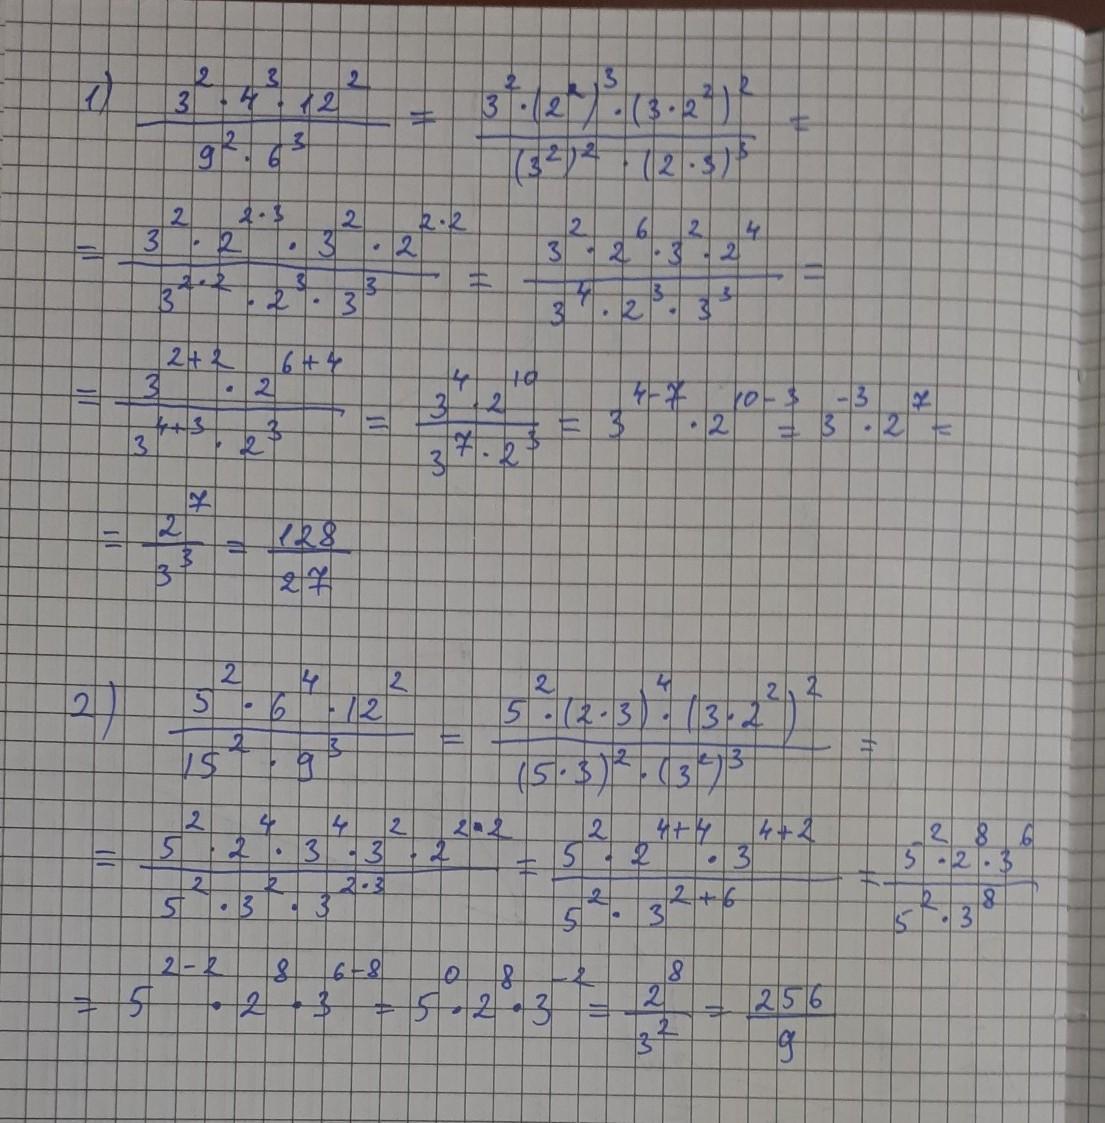 1) (3² · 4³ · 12²)/(9² · 6³) = (3² · (2²)³ · (3 · 2²)²)/((3²)² · (2 · 3)³) =
= (3² · 2^(2·3) · 3² · 2^(2·2))/(3^(2·2) · 2³ · 3³) = (3² · 2⁶ · 3² · 2⁴)/(3⁴ · 2³ · 3³) =
= (3^(2+2) · 2^(6+4))/(3^(4+3) · 2³) = (3⁴ · 2¹⁰)/(3⁷ · 2³) = 3^(4-7) · 2^(10-3) = 3⁻³ · 2⁷ =
= 2⁷/3³ = 128/27
2) (5² · 6⁴ · 12²)/(15² · 9³) = (5² · (2·3)⁴ · (3 · 2²)²)/((5·3)² · (3²)³) =
= (5² · 2⁴ · 3⁴ · 3² · 2^(2·2))/(5² · 3² · 3^(2·3)) = (5² · 2^(4+4) · 3^(4+2))/(5² · 3^(2+6)) = (5² · 2⁸ · 3⁶)/(5² · 3⁸)
= 5^(2-2) · 2⁸ · 3^(6-8) = 5⁰ · 2⁸ · 3⁻² = 2⁸/3² = 256/9